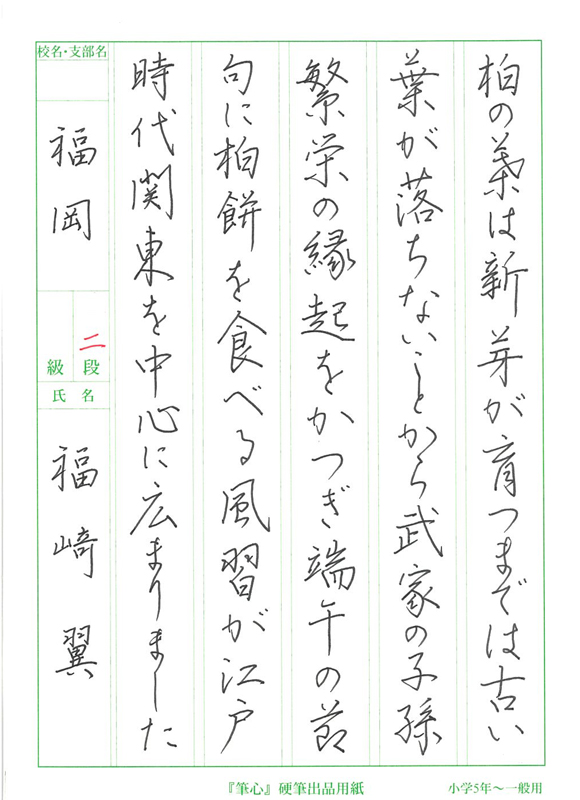 柏の葉は新芽が育つまでは古い
葉が落ちないことから武家の子孫
繁栄の縁起をかつぎ端午の節
句に柏餅を食べる風習が江戸
時代関東を中心に広まりました
校名・支部名
福岡
二
段
級
氏名
福﨑翼
『筆心』硬筆出品用紙
小学5年～一般用